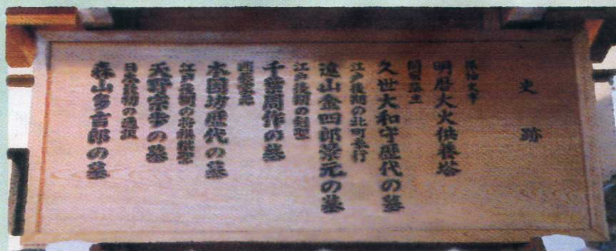 史跡
振袖火事
明暦大火供養塔
関宿藩主
久世大和守歴代の墓
江戸後期の北町奉行
遠山金四郎景元の墓
江戸後期の
千葉周作の墓
囲碁家元
本因坊歴代の墓
江戸後期の
天野宗歩の墓
日米最初の通訳
森山多吉郎の墓